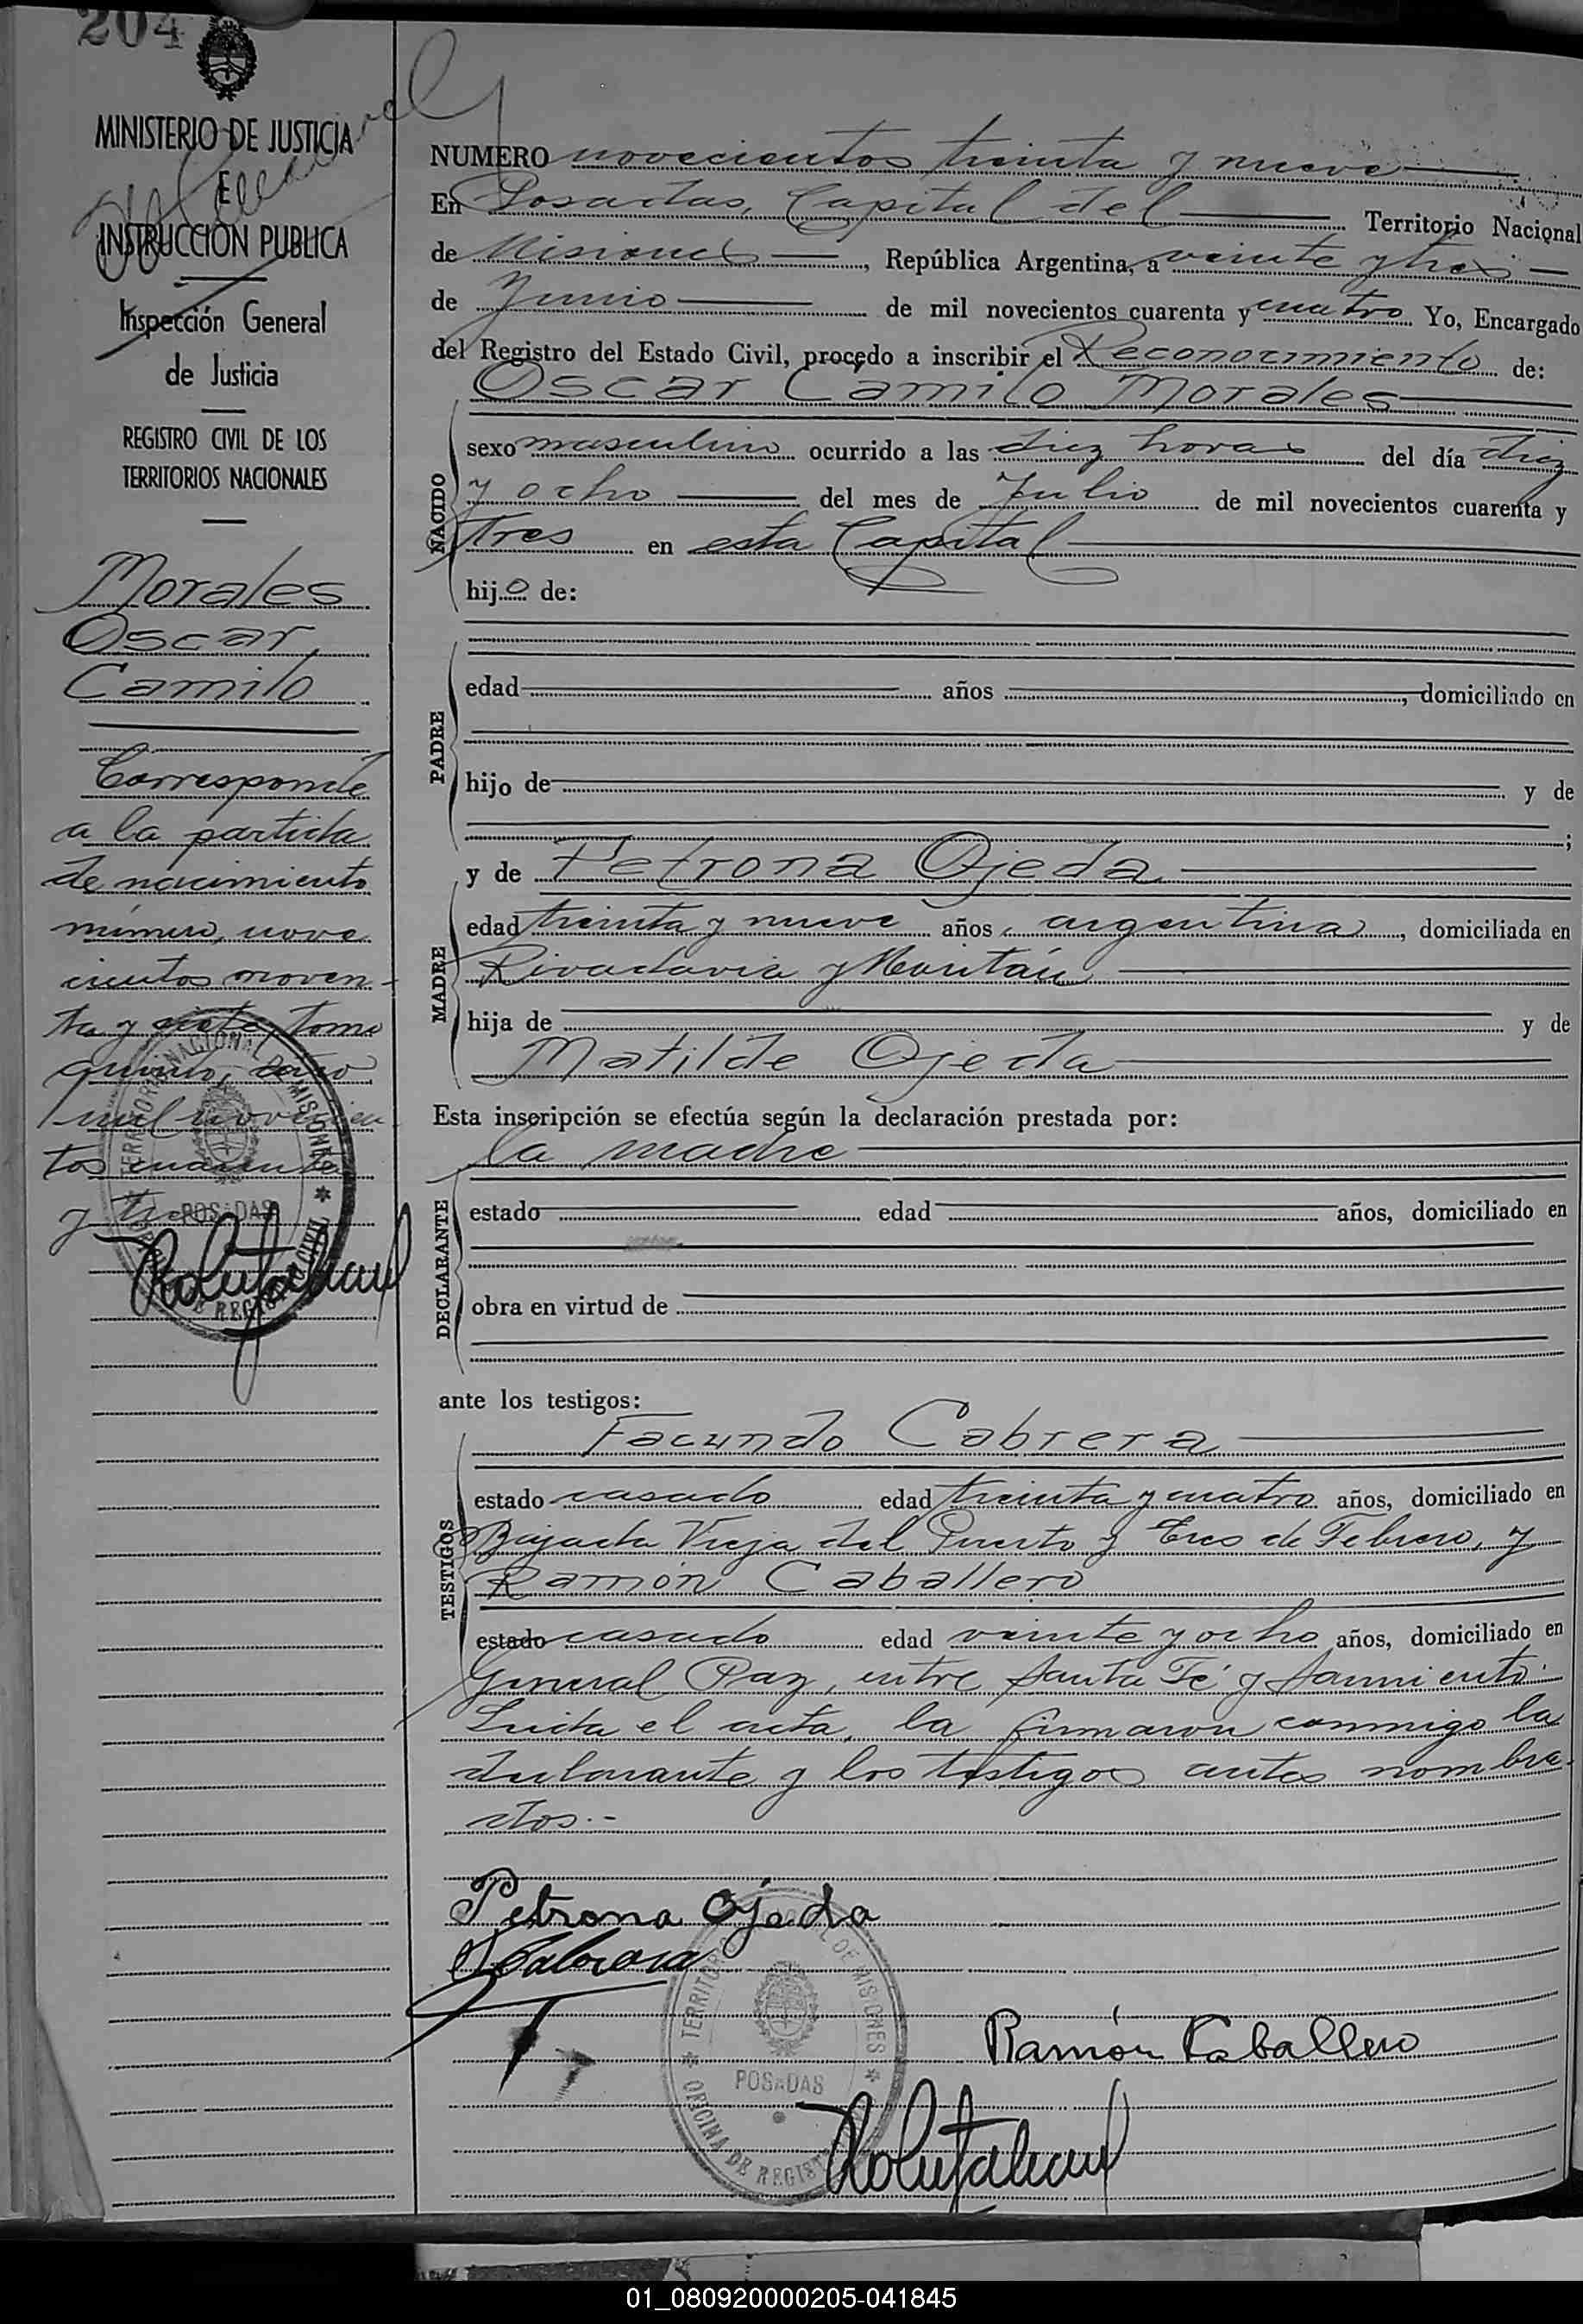 204
MINISTERIO DE JUSTICIA
E
INSTRUCCIÓN PUBLICA
Inspección General
de Justicia
REGISTRO CIVIL DE LOS
TERRITORIOS NACIONALES
Morales
Oscar
Camilo
Corresponde
a la partida
de nacimiento
número, nove
cientos noven-
ta y siete, tomo
quinto, año
mil novecien
tos cuarenta
y tres
NUMERO novecientos treinta y nueve
En Posadas, Capital del Territorio Nacional
de Misiones, República Argentina, a veinte y tres
de Junio de mil novecientos cuarenta y cuatro Yo, Encargado
del Registro del Estado Civil, procedo a inscribir el Reconocimiento de:
Oscar Camilo Morales
NACIDO
sexo masculino ocurrido a las diez horas del día diez
y ocho del mes de Julio de mil novecientos cuarenta y
tres en esta Capital
hijo de:
PADRE
edad años, domiciliado en
hijo de y de
;
y de Petrona Ojeda
MADRE
edad treinta y nueve años, argentina, domiciliada en
Rivadavia y
hija de y de
Matilde Ojeda
Esta inscripción se efectúa según la declaración prestada por:
la madre
DECLARANTE
estado edad años, domiciliado en
obra en virtud de
ante los testigos:
Facundo Cabrera
TESTIGOS
estado casado edad treinta y cuatro años, domiciliado en
Bajada Vieja del Puerto y Tres de Febrero, y
Ramón Caballero
estado casado edad veinte y ocho años, domiciliado en
General Paz, entre Santa Fé y Sarmiento.
Leida el acta, la firmaron conmigo la
declarante y los testigos antes nombra-
dos.-
Petrona Ojeda
F Cabrera
Ramón Caballero
TERRITORIO NACIONAL DE MISIONES
POSADAS
OFICINA DE REGISTRO CIVIL
01_080920000205-041845